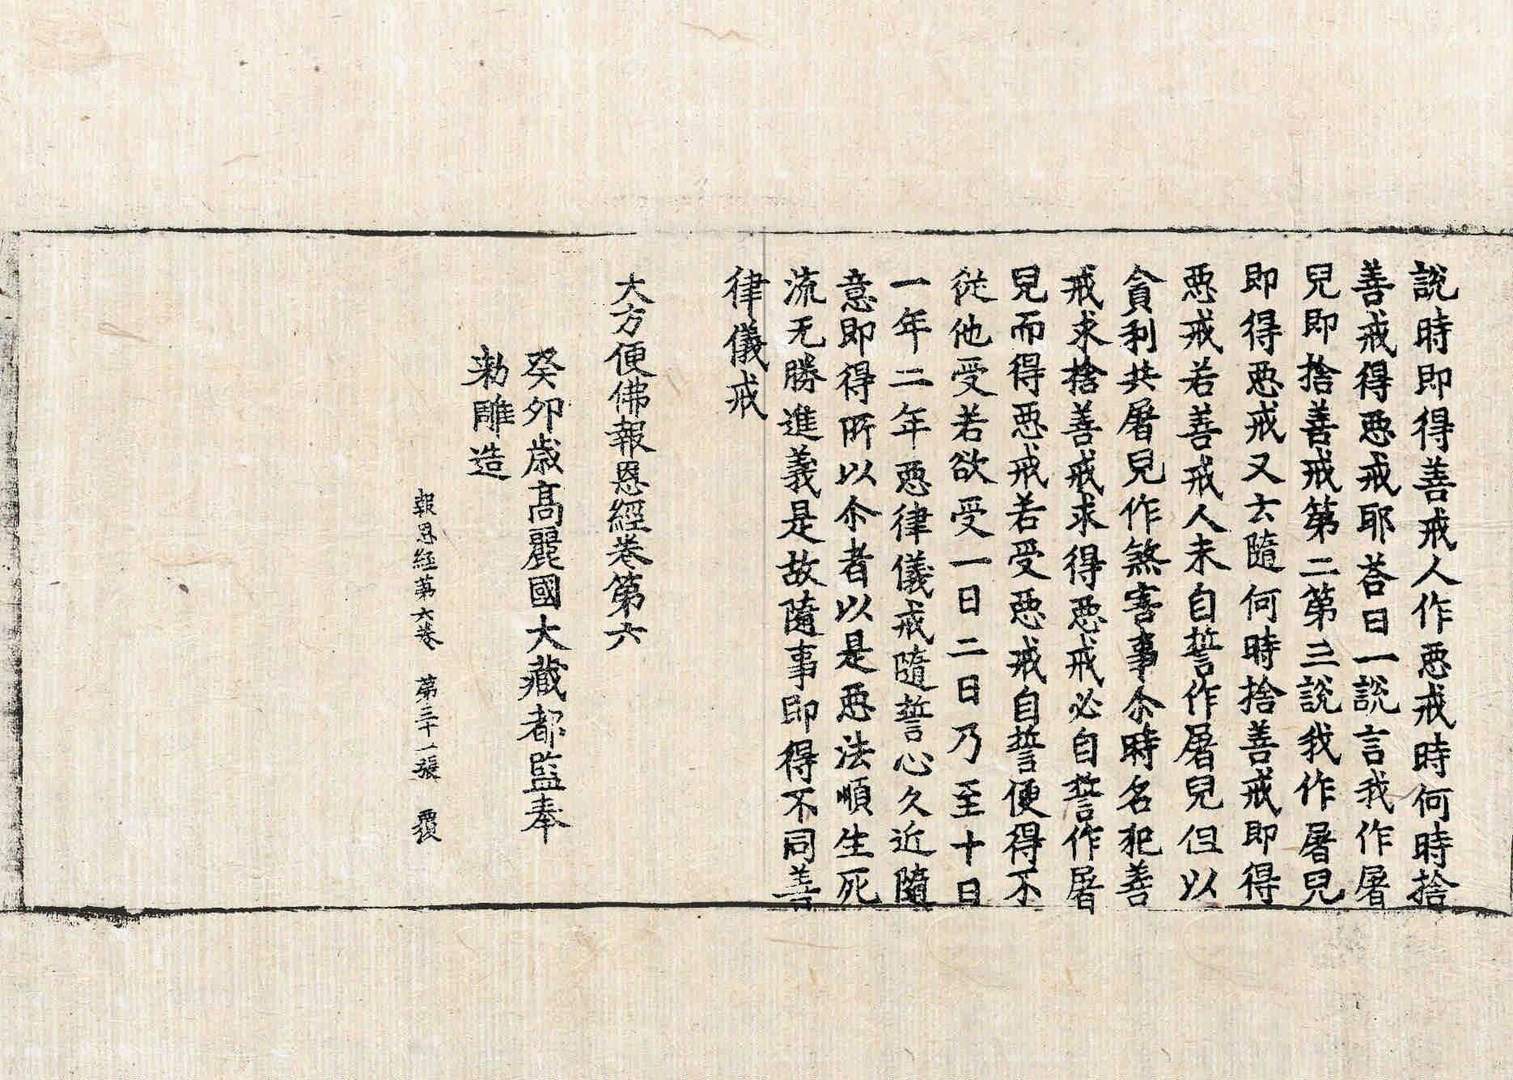 說時即得善戒人作惡戒時何時捨
善戒得惡戒耶荅曰一說言我作屠
兒即捨善戒第二第三說我作屠兒
即得惡戒又云隨何時捨善戒即得
惡戒若善戒人未自誓作屠兒但以
貪利共屠兒作煞害事尒時名犯善
戒未捨善戒未得惡戒必自誓作屠
兒而得惡戒若受惡戒自誓便得不
從他受若欲受一日二日乃至十日
一年二年惡律儀戒隨誓心久近隨
意即得所以尒者以是惡法順生死
流无勝進義是故隨事即得不同善
律儀戒
大方便佛報恩經卷第六
癸卯歲高麗國大藏都監奉
勅雕造
報恩經第六卷 第三十一張 覆